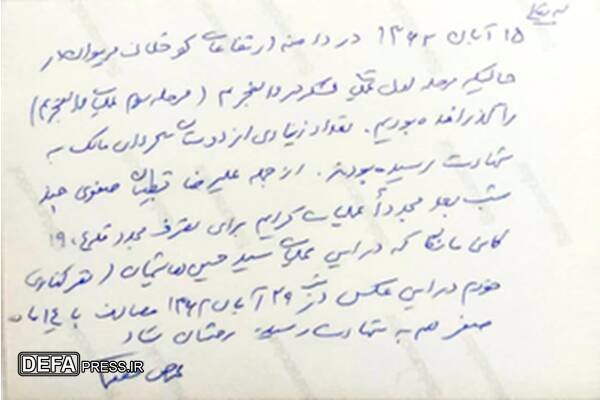 ۱۵ آبان ۱۳۶۲ در دامنه ارتفاعات کوخلان مریوان در
حالیکه مرحله اول عملیات لشکر در والفجر ۴ (مرحله سوم عملیات والفجر ۴)
را گذرانده بودیم. تعداد زیادی از دوستان گردان مالک به
شهادت رسیده بودند. از جمله علیرضا صفوی چند
شب بعد مجدداً عملیات کردیم برای تصرف مجدد قله ۱۹۰۴
کانی مانگا که در این عملیات سید حسین هاشمیان (نفر کناری
خودم در این عکس) در شب ۲۹ آبان ۱۳۶۲ مصادف با ۱۴ ماه
صفر هم به شهادت رسید. روحشان شاد
DEFAPRESS.IR